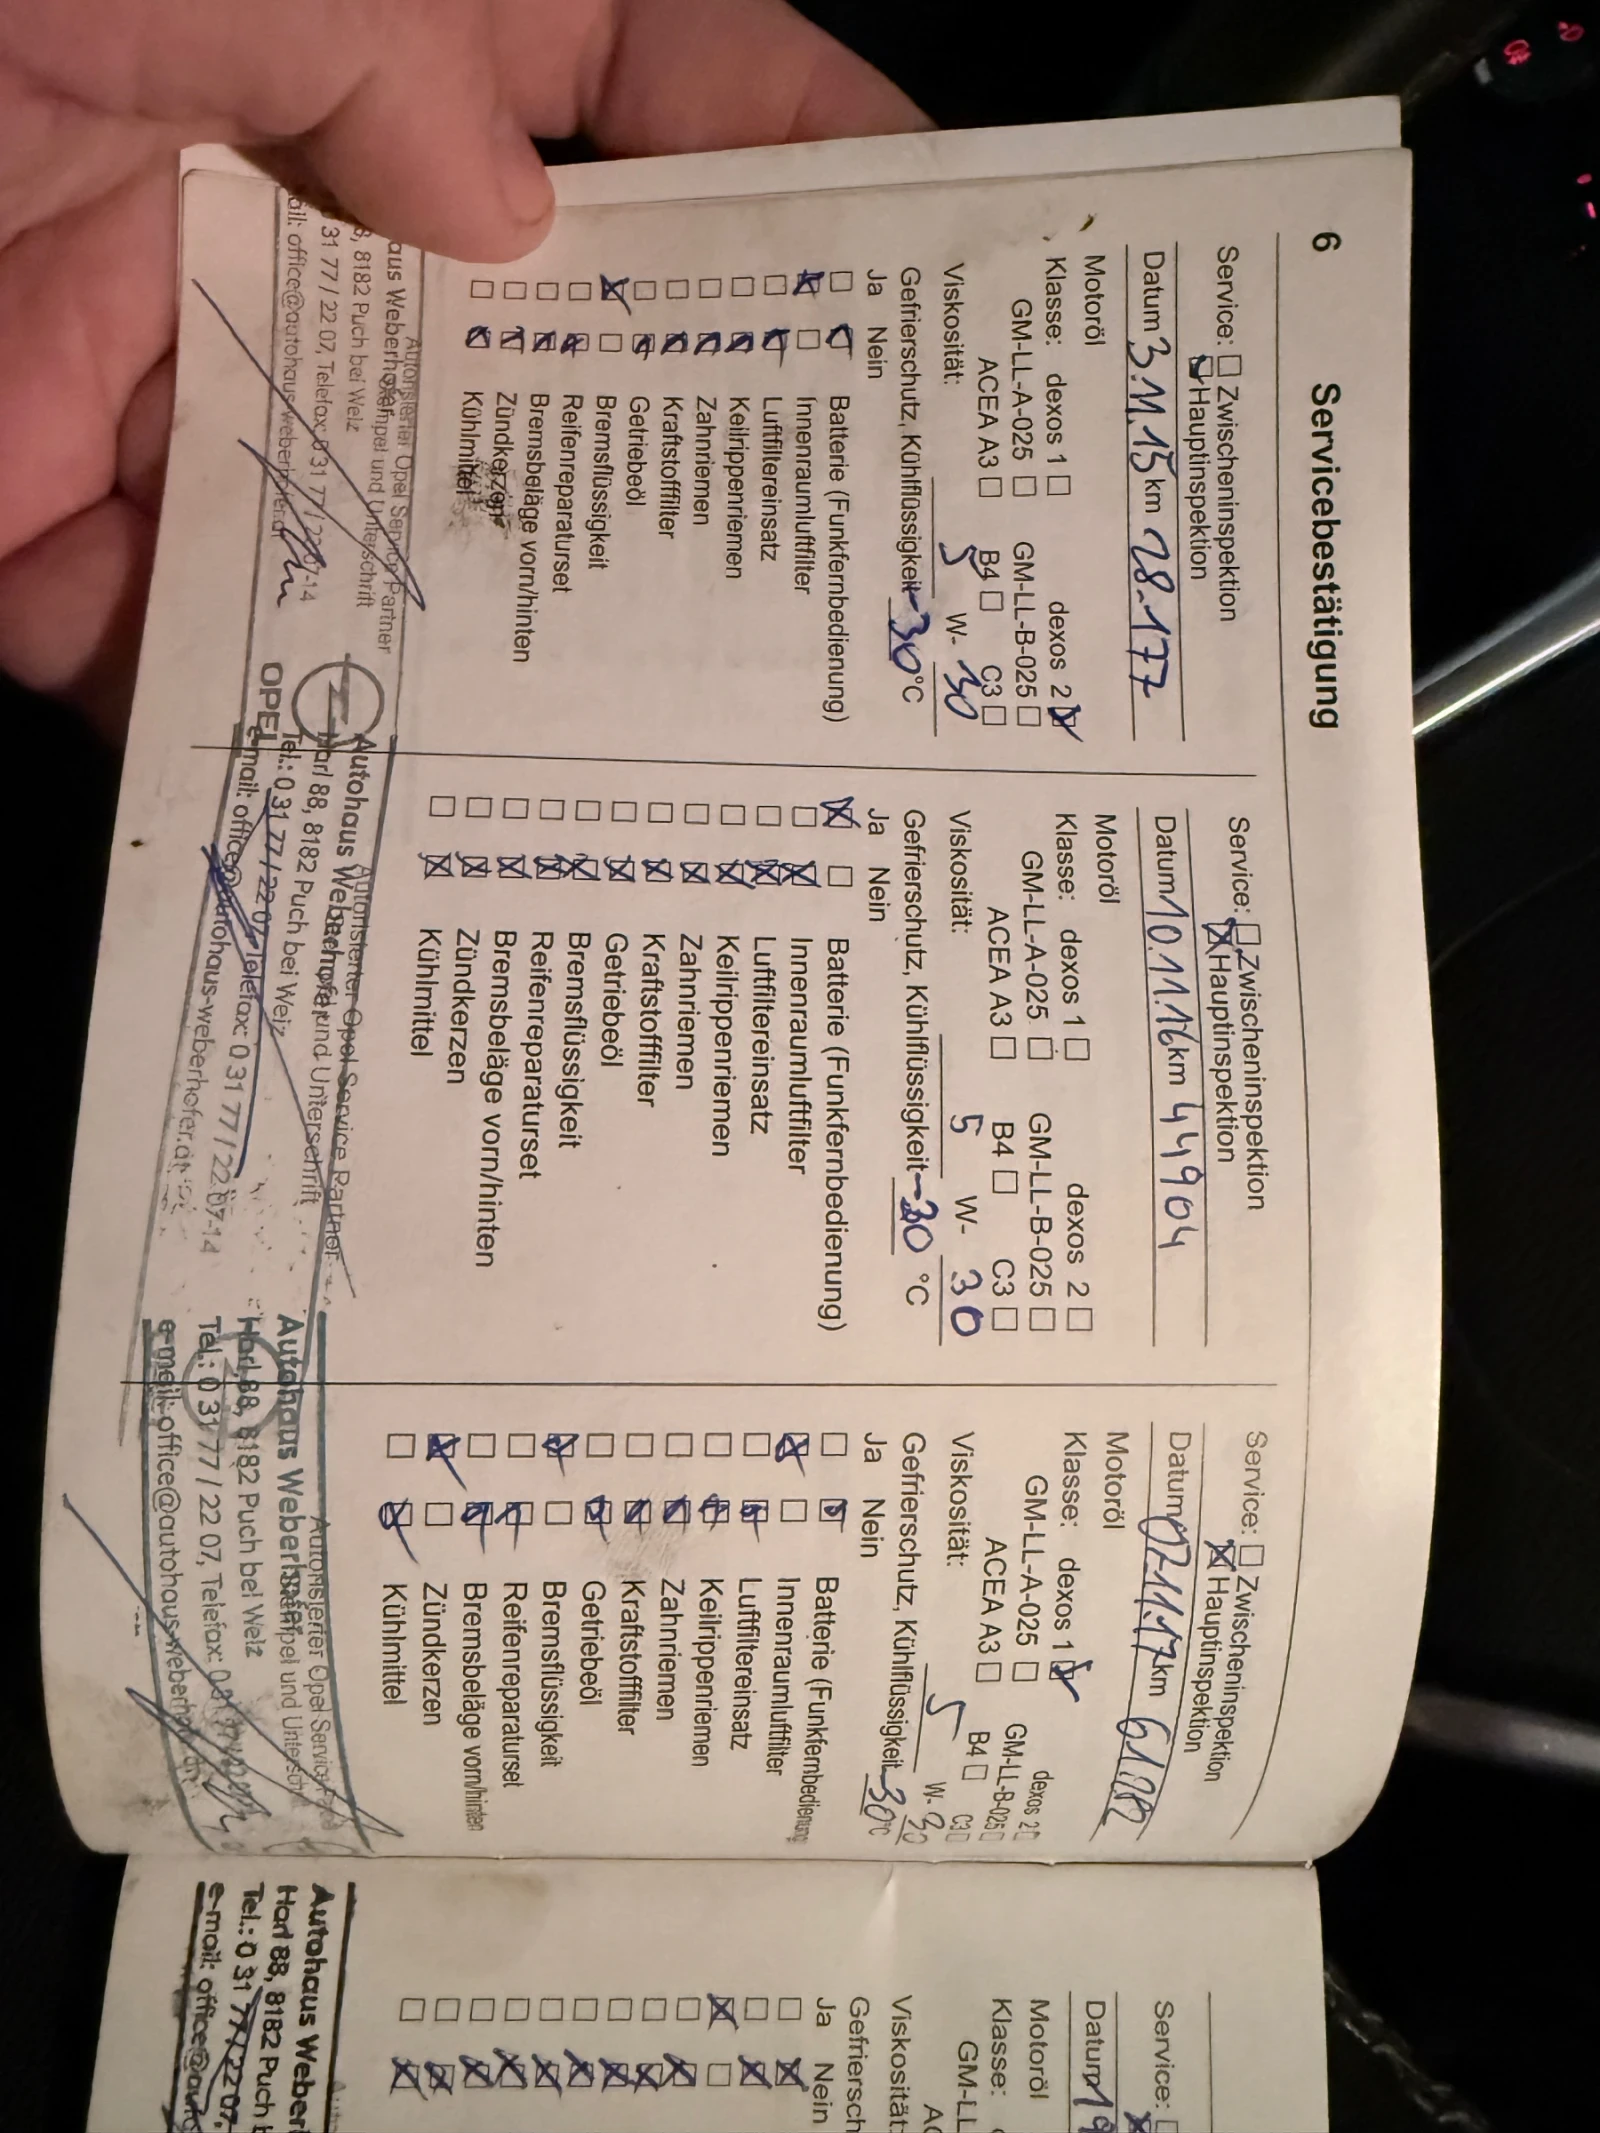 6 Servicebestätigung
Service: Zwischeninspektion
Hauptinspektion
Datum 3.11.15 km 28.177
Motoröl
Klasse: dexos 1 dexos 2
GM-LL-A-025 GM-LL-B-025
ACEA A3 B4 C3
Viskosität: 5 W- 30
Gefrierschutz, Kühlflüssigkeit -30 °C
Ja Nein
Batterie (Funkfernbedienung)
Innenraumluftfilter
Luftfiltereinsatz
Keilrippenriemen
Zahnriemen
Kraftstofffilter
Getriebeöl
Bremsflüssigkeit
Reifenreparaturset
Bremsbeläge vorn/hinten
Zündkerzen
Kühlmittel
Autorisierter Opel Service Partner
aus Weberhofer
Stempel und Unterschrift
8, 8182 Puch bei Weiz
31 77 / 22 07, Telefax: 0 31 77 / 22 07-14
ail: office@autohaus-weberhofer.at
OPEL
Service: Zwischeninspektion
Hauptinspektion
Datum 10.11.16 km 44904
Motoröl
Klasse: dexos 1 dexos 2
GM-LL-A-025 GM-LL-B-025
ACEA A3 B4 C3
Viskosität: 5 W- 30
Gefrierschutz, Kühlflüssigkeit -30 °C
Ja Nein
Batterie (Funkfernbedienung)
Innenraumluftfilter
Luftfiltereinsatz
Keilrippenriemen
Zahnriemen
Kraftstofffilter
Getriebeöl
Bremsflüssigkeit
Reifenreparaturset
Bremsbeläge vorn/hinten
Zündkerzen
Kühlmittel
Autorisierter Opel Service Partner
Autohaus Weberhofer
Stempel und Unterschrift
Harl 88, 8182 Puch bei Weiz
Tel.: 0 31 77 / 22 07, Telefax: 0 31 77 / 22 07-14
e-mail: office@autohaus-weberhofer.at
Service: Zwischeninspektion
Hauptinspektion
Datum 02.11.17 km
Motoröl
Klasse: dexos 1 dexos 2
GM-LL-A-025 GM-LL-B-025
ACEA A3 B4 C3
Viskosität: 5 W- 30
Gefrierschutz, Kühlflüssigkeit -30 °C
Ja Nein
Batterie (Funkfernbedienung)
Innenraumluftfilter
Luftfiltereinsatz
Keilrippenriemen
Zahnriemen
Kraftstofffilter
Getriebeöl
Bremsflüssigkeit
Reifenreparaturset
Bremsbeläge vorn/hinten
Zündkerzen
Kühlmittel
Autorisierter Opel Service
Autohaus Weberhofer
Stempel und Untersch
Harl 88, 8182 Puch bei Weiz
Tel.: 0 31 77 / 22 07, Telefax:
e-mail: office@autohaus-weberhofer
Service:
Datum 19
Motoröl
Klasse:
GM-LL
AC
Viskosität:
Gefriersch
Ja Nein
Autohaus Weber
Harl 88, 8182 Puch b
Tel.: 0 31 77 / 22 07,
e-mail: office@auto